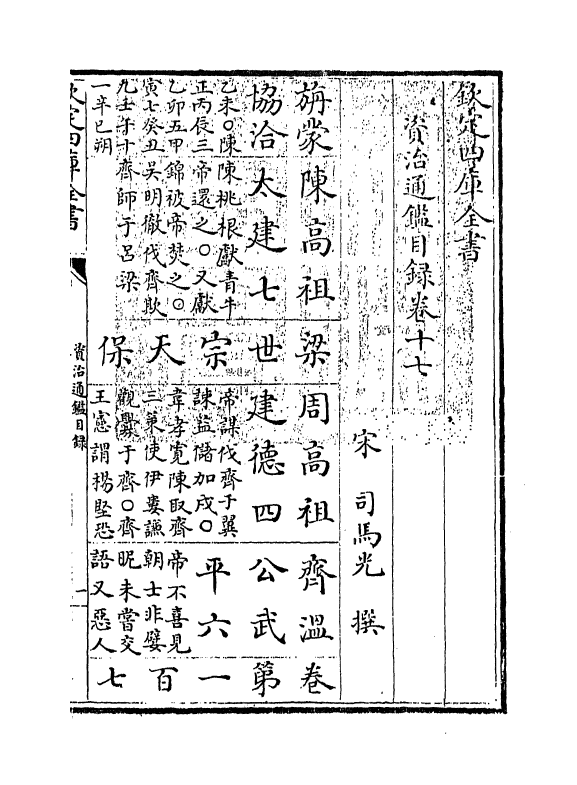 欽定四庫全書
資治通鑑目録卷十七
宋 司馬光 撰
旃蒙 陳高祖 梁 周高祖 齊溫 卷
協洽 太建七 世 建德四 公武 第
乙未○陳 陳桃根獻青牛 宗 帝謀伐齊于翼 平六 一
正丙辰三 帝還之○又獻 諫益儲加戍○
乙卯五甲 錦被帝焚之○ 天 韋孝寛陳取齊 帝不喜見 百
寅七癸丑 吳明徹伐齊敗 三策使伊婁謙 朝士非嬖
九壬午十 齊師于呂梁 保 觀釁于齊○齊 昵未嘗交 七
一辛巳朔 王憲謂楊堅恐 語又惡人
欽定四庫全書
資治通鑑目録
一